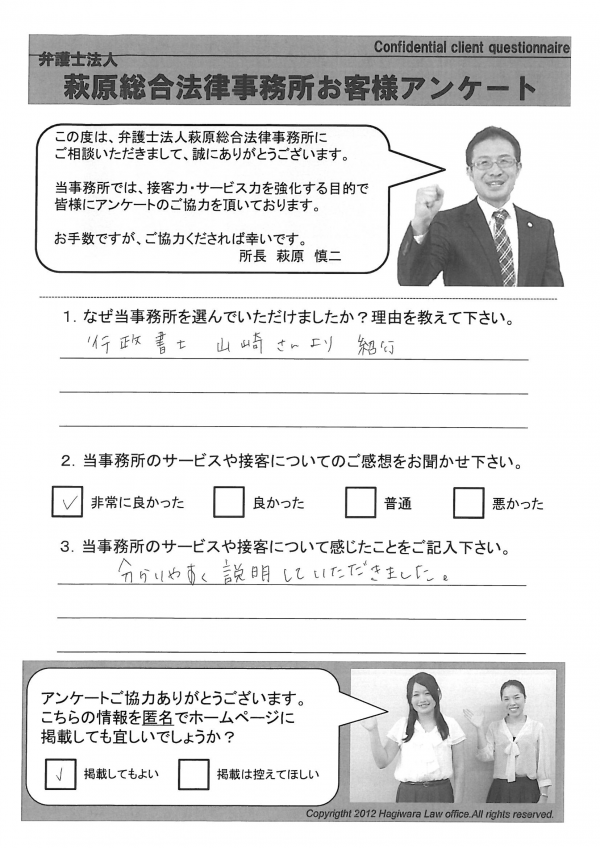 Confidential client questionnaire
弁護士法人
萩原総合法律事務所お客様アンケート
この度は、弁護士法人萩原総合法律事務所に
ご相談いただきまして、誠にありがとうございます。
当事務所では、接客力・サービス力を強化する目的で
皆様にアンケートのご協力を頂いております。
お手数ですが、ご協力くだされば幸いです。
所長 萩原 慎二
1．なぜ当事務所を選んでいただけましたか？理由を教えて下さい。
行政書士 山崎さんより 紹介
2．当事務所のサービスや接客についてのご感想をお聞かせ下さい。
非常に良かった 良かった 普通 悪かった
3．当事務所のサービスや接客について感じたことをご記入下さい。
分かりやすく説明していただきました。
アンケートご協力ありがとうございます。
こちらの情報を匿名でホームページに
掲載しても宜しいでしょうか？
掲載してもよい 掲載は控えてほしい
Copyright 2012 Hagiwara Law office.All rights reserved.